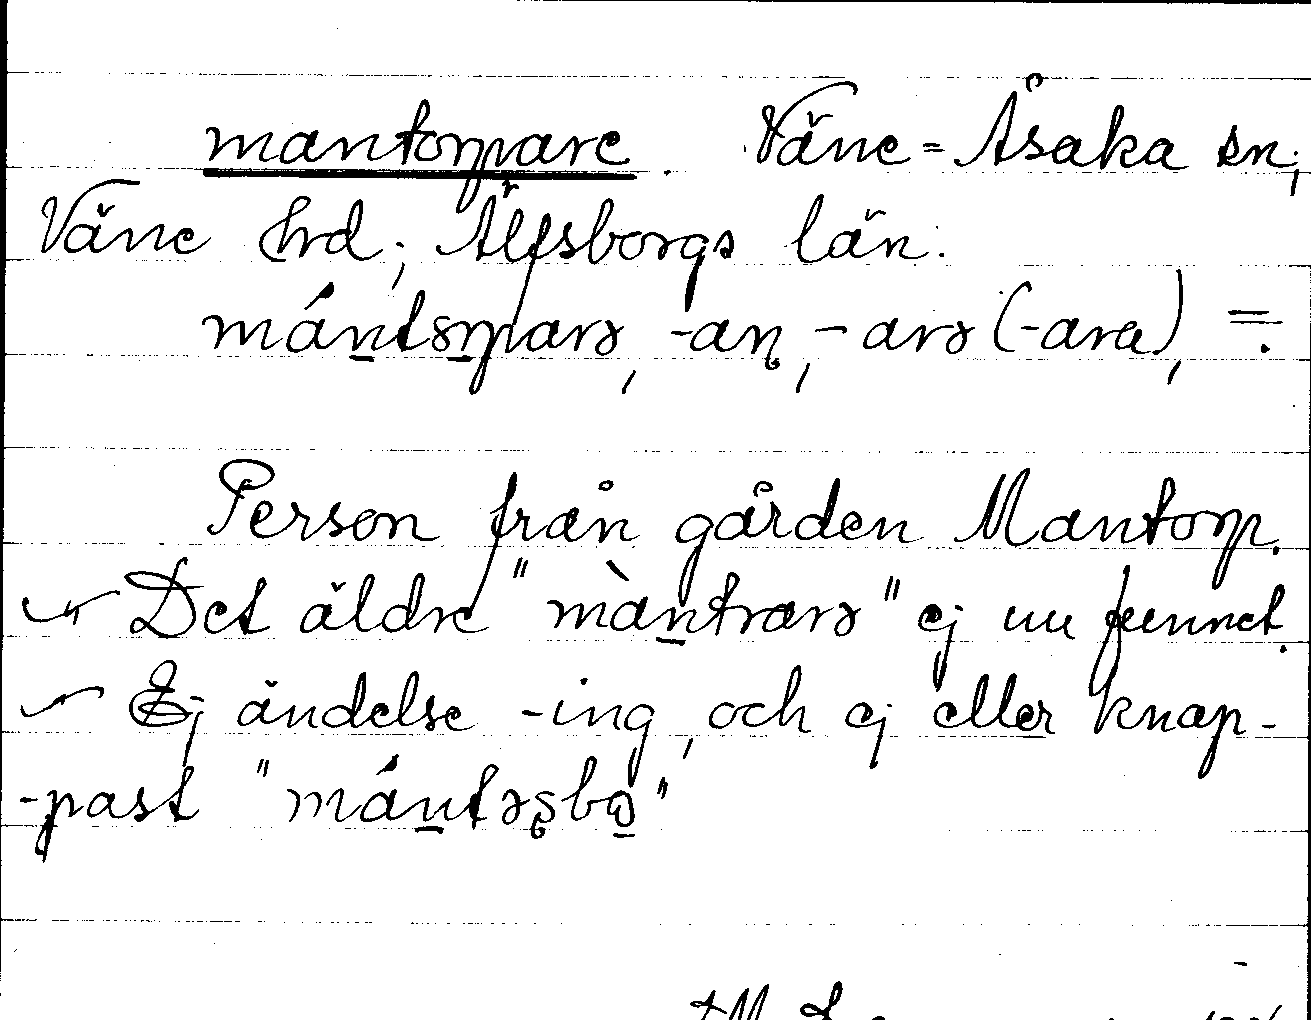 mantorpare. Väne-Åsaka sn,
Väne hrd, Älfsborgs län.
mántɞrparə, -aɳ, -arə (-ara), =.
Person från gården Mantorp.
Det äldre "màntrarə" ej nu funnet.
Ej ändelse -ing, och ej eller knap-
-past "mántəʂbo"